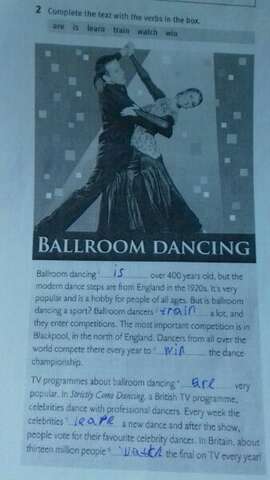 2 Complete the text with the verbs in the box.
are is learn train watch win
BALLROOM DANCING
Ballroom dancing ¹ is over 400 years old, but the
modern dance steps are from England in the 1920s. It's very
popular and is a hobby for people of all ages. But is ballroom
dancing a sport? Ballroom dancers ² train a lot, and
they enter competitions. The most important competition is in
Blackpool, in the north of England. Dancers from all over the
world compete there every year to ³ win the dance
championship.
TV programmes about ballroom dancing ⁴ are very
popular. In Strictly Come Dancing, a British TV programme,
celebrities dance with professional dancers. Every week the
celebrities ⁵ learn a new dance and after the show,
people vote for their favourite celebrity dancer. In Britain, about
thirteen million people ⁶ watch the final on TV every year!